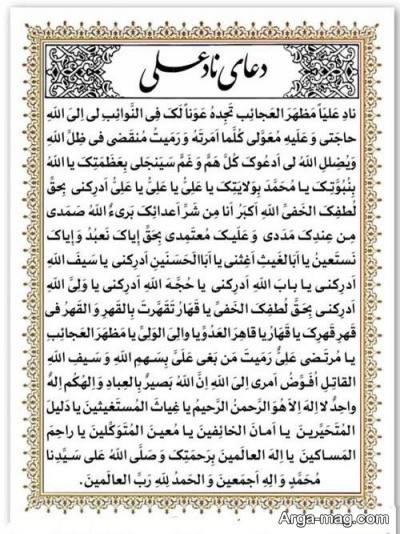 دعای ناد علی
نادِ عَلیاً مَظهَرَ العَجائِب تَجِدهُ عَوناً لَکَ فِی النَّوائِبِ لی اِلَی اللهِ
حاجَتی وَ عَلَیهِ مُعَوَّلی کُلَّما اَمَرتَهُ وَ رَمَیتُ مُنقَضی فی ظِلِّ اللهِ
وَ یُضلِلِ اللهُ لی اَدعُوکَ کُلَّ هَمٍّ وَ غَمٍّ سَیَنجَلی بِعَظَمَتِکَ یا اللهُ
بِنُبُوَّتِکَ یا مُحَمَّدَ بِوَلایَتِکَ یا عَلِیُّ یا عَلِیُّ یا عَلِیُّ اَدرِکنی بِحَقِّ
لُطفِکَ الخَفیِّ اللهِ اَکبَرُ اَنَا مِن شَرِّ اَعدائِکَ بَریءُ اللهُ صَمَدی
مِن عِندِکَ مَدَدی وَ عَلَیکَ مُعتَمِدی بِحَقِّ اِیاکَ نَعبُدُ وَ اِیاکَ
نَستَعینُ یا اَبَا الغَیثِ اَغِثنی یا اَبَا الحَسَنَینِ اَدرِکنی یا سَیفَ اللهِ
اَدرِکنی یا بابَ اللهِ اَدرِکنی یا حُجَّةَ اللهِ اَدرِکنی یا وَلِیَّ اللهِ
اَدرِکنی بِحَقِّ لُطفِکَ الخَفیِّ یا قَهّارُ تَقَهَّرتَ بِالقَهرِ وَ القَهرُ فی
قَهرِ قَهرِکَ یا قَهّارُ یا قاهِرَ العَدُوِّ یا والِیَ الوَلِیِّ یا مَظهَرَ العَجائِبِ
یا مُرتَضی عَلِیُّ رَمَیتَ مَن بَغی عَلَیَّ بِسَهمِ اللهِ وَ سَیفِ اللهِ
القاتِلِ اُفَوِّضُ اَمری اِلَی اللهِ اِنَّ اللهَ بَصیرٌ بِالعِبادِ وَ اِلهُکُم اِلهٌ
واحِدٌ لا اِلهَ اِلّا هُوَ الرَّحمنُ الرَّحیمُ یا غِیاثَ المُستَغیثینَ یا دَلیلَ
المُتَحَیِّرینَ یا اَمانَ الخائِفینَ یا مُعینَ المُتَوَکِّلینَ یا راحِمَ
المَساکینَ یا اِلهَ العالَمینَ بِرَحمَتِکَ وَ صَلَّی اللهُ عَلی سَیِّدِنا
مُحَمَّدٍ وَ الِهِ اَجمَعینَ وَ الحَمدُ لِلّهِ رَبِّ العالَمینَ.
Arga-mag.com